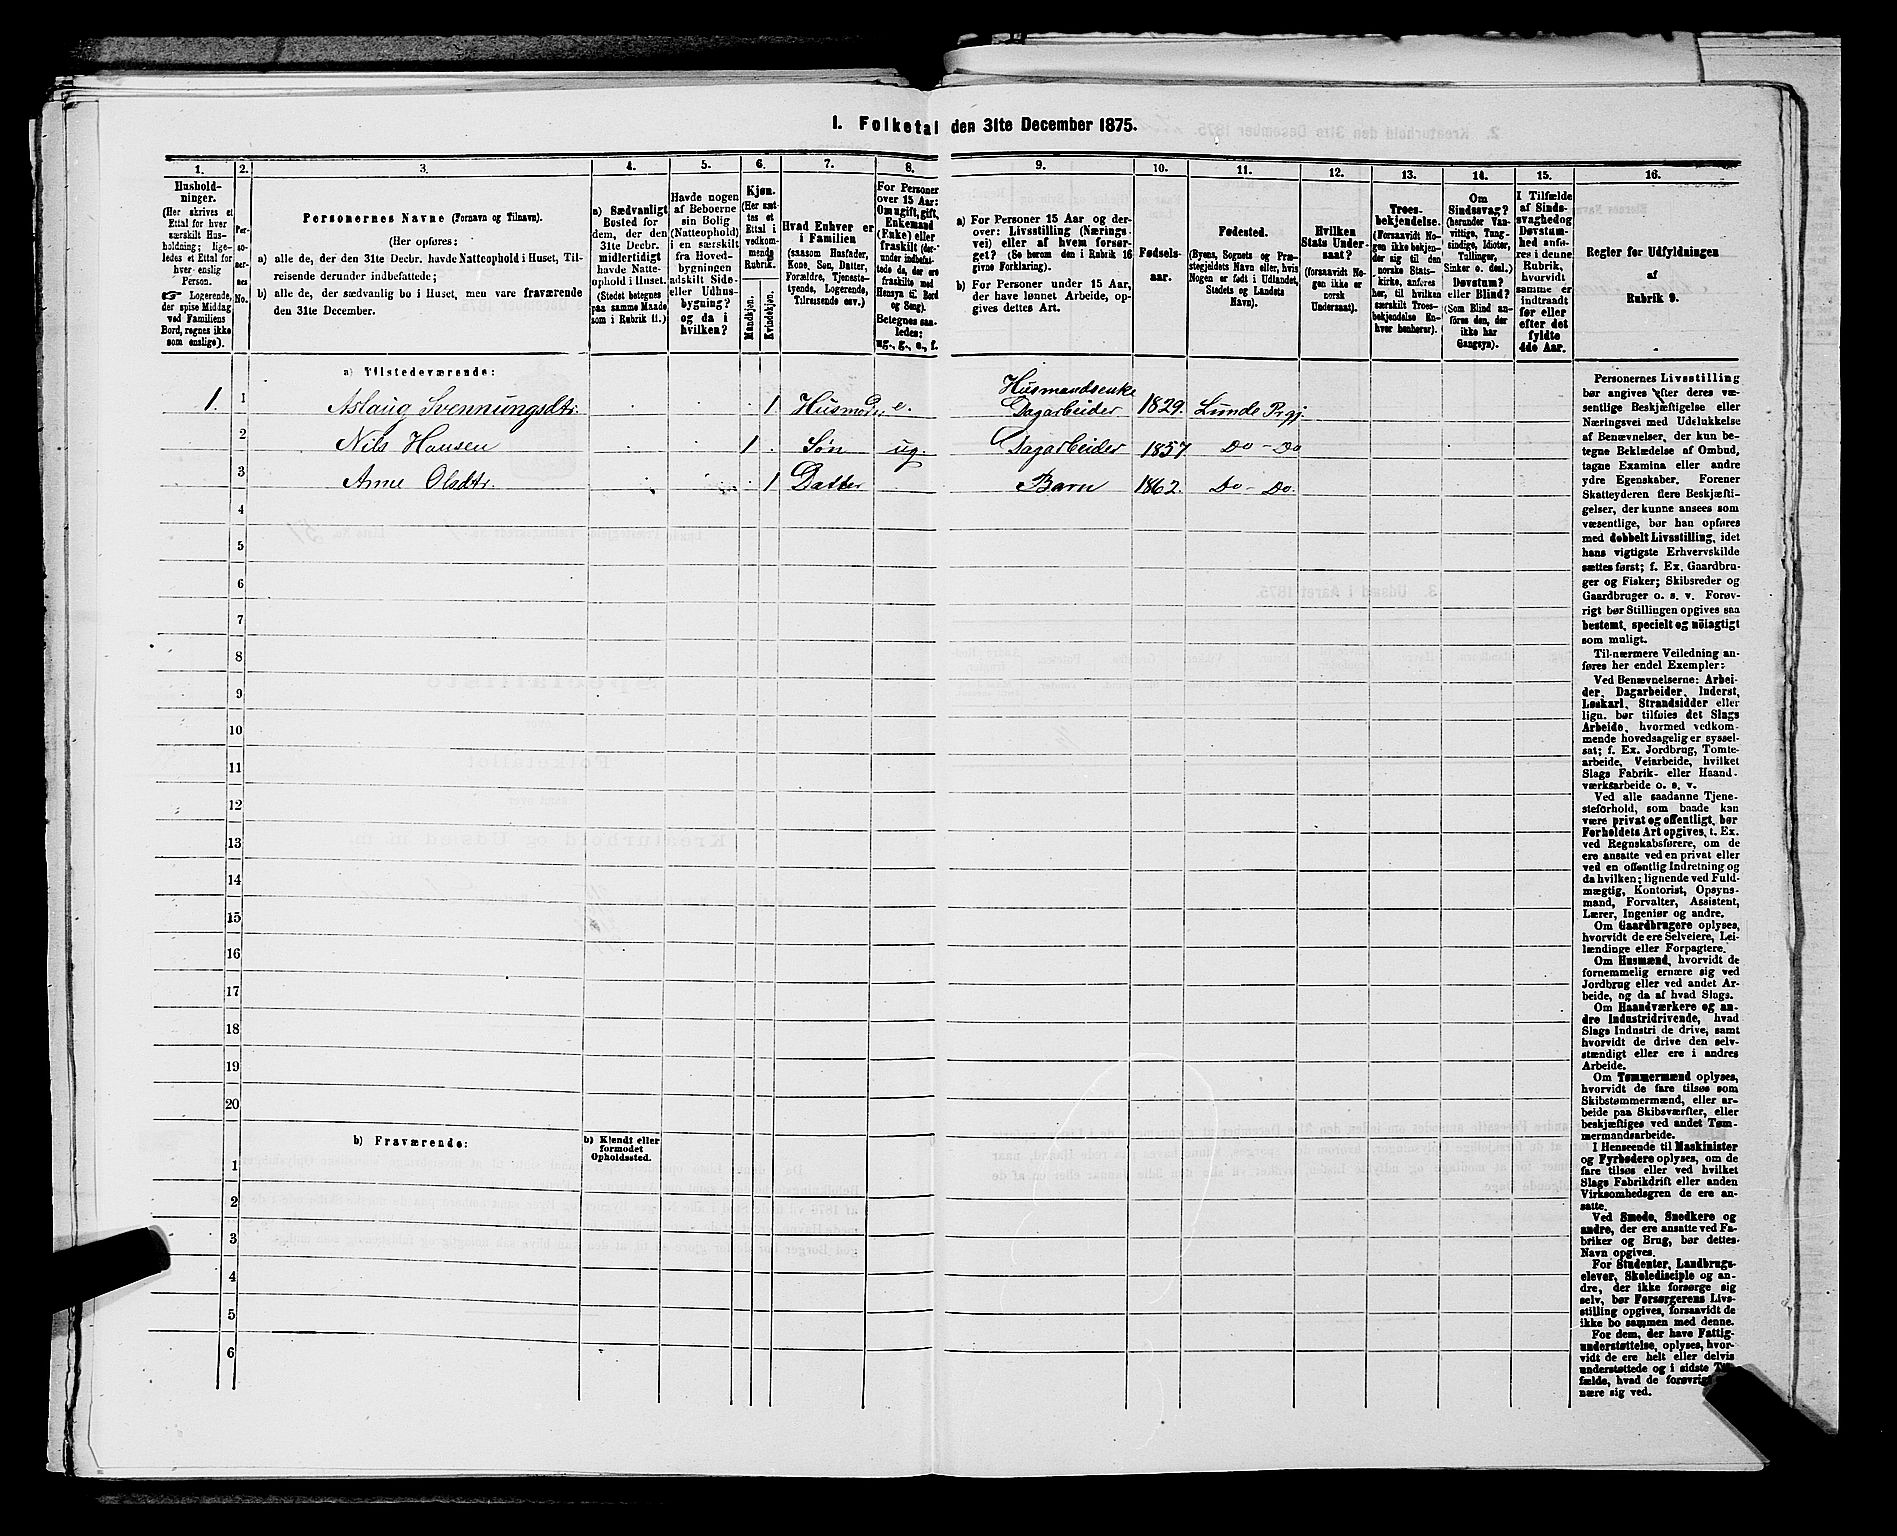 1. Folketal den 31te December 1875.
1.
2.
3.
4.
5.
6.
7.
8.
9.
10.
11.
12.
13.
14.
15.
16.
Hushold-
ninger.
(Her skrives et
Ettal for hver
særskilt Hus-
holdning; lige-
ledes et Ettal for
hver enslig
Person.
☞ Logerende,
der spise Middag
ved Familiens
Bord, regnes ikke
som enslige).
Per-
so-
ner-
nes
No.
Personernes Navne (Fornavn og Tilnavn).
(Her opføres:
a) alle de, der den 31te Decbr. havde Natteophold i Huset, Til-
reisende derunder indbefattede;
b) alle de, der sædvanlig bo i Huset, men vare fraværende
den 31te December.
a) Sædvanligt
Bosted for
dem, der den
31te Decbr.
midlertidigt
havde Natte-
ophold i Huset.
(Stedet betegnes
paa samme Maade
som i Rubrik 11.)
Havde nogen
af Beboerne
sin Bolig
(Natteophold)
i en særskilt
fra Hoved-
bygningen
adskilt Side-
eller Udhus-
bygning?
og da i
hvilken?
Kjøn.
(Her sæt-
tes et
Ettal i
vedkom-
mende
Rubrik.
Mandkjøn.
Kvindekjøn.
Hvad Enhver er
i Familien
(saasom Husfader,
Kone, Søn, Datter,
Forældre, Tjeneste-
tyende, Logerende,
Tilreisende osv.)
For Personer
over 15 Aar:
Om ugift, gift,
Enkemand
(Enke) eller
fraskilt (der-
under indbefat-
tede de, der ere
fraskilte med
Hensyn til Bord
og Seng).
Betegnes saa-
ledes:
ug., g., e., f.
a) For Personer 15 Aar og der-
over: Livsstilling (Nærings-
vei) eller af hvem forsør-
get? (Se herom den i Rubrik 16
givne Forklaring).
b) For Personer under 15 Aar,
der have lønnet Arbeide, op-
gives dettes Art.
Fødsels-
aar.
Fødested.
(Byens, Sognets og Præ-
stegjeldets Navn eller, hvis
Nogen er født i Udlandet,
Stedets og Landets
Navn).
Hvilken
Stats Under-
saat?
(forsaavidt No-
gen ikke er
norsk
Undersaat).
Troes-
bekjendelse.
(Forsaavidt No-
gen ikke bekjen-
der sig til den
norske Stats-
kirke, anføres
her, til hvilken
særskilt Troes-
bekjendelse En-
hver henhører).
Om
Sindssvag?
(herunder Van-
vittige, Tung-
sindige, Idioter,
Tullinger,
Sinker o. desl.)
Døvstum?
eller Blind?
(Som Blind an-
føres den, der
ikke har
Gangsyn).
I Tilfælde
af Sinds-
svaghed og
Døvstum-
hed anfø-
res i denne
Rubrik,
hvorvidt
samme er
indtraadt
før eller
efter det
fyldte
4de Aar.
Regler for Udfyldningen
af
Rubrik 9.
a) Tilstedeværende:
1. 1 Aslaug Svennungsdtr. 1 Husmoder e. Husmandsenke
Dagarbeider 1829. Lunde Prgj.
2 Nils Hansen 1 Søn ug. Dagarbeider 1857 Do - Do
3 Anne Olsdtr. 1 Datter Barn 1862. Do - Do.
4
5
6
7
8
9
10
11
12
13
14
15
16
17
18
19
20
b) Fraværende:
b) Kjendt eller
formodet
Opholdssted.
1
2
3
4
5
6
Personernes Livsstilling
bør angives efter deres væ-
sentlige Beskjæftigelse eller
Næringsvei med Udelukkelse
af Benævnelser, der kun be-
tegne Beklædelse af Ombud,
tagne Examina eller andre
ydre Egenskaber. Forener
Skatteyderen flere Beskjæfti-
gelser, der kunne ansees som
væsentlige, bør han opføres
med dobbelt Livsstilling, idet
hans vigtigste Erhvervskilde
sættes først; f. Ex. Gaardbru-
ger og Fisker; Skibsreder og
Gaardbruger o. s. v. Forøv-
rigt bør Stillingen opgives saa
bestemt, specielt og nöiagtigt
som muligt.
Til nærmere Veiledning an-
føres her endel Exempler:
Ved Benævnelserne: Arbei-
der, Dagarbeider, Inderst,
Løskarl, Strandsidder eller
lign. bør tilføies det Slags
Arbeide, hvormed vedkom-
mende hovedsagelig er syssel-
sat; f. Ex. Jordbrug, Tomte-
arbeide, Veiarbeide, hvilket
Slags Fabrik- eller Haand-
værksarbeide o. s. v.
Ved alle saadanne Tjene-
steforhold, som baade kan
være privat og offentligt, bør
Forholdets Art opgives, t. Ex.
ved Regnskabsførere, om de
ere ansatte ved en privat eller
ved en offentlig Indretning og
da hvilken; lignende ved Fuld-
mægtig, Kontorist, Opsyns-
mand, Forvalter, Assistent,
Lærer, Ingeniør og andre.
Om Gaardbrugere oplyses,
hvorvidt de ere Selveiere, Lei-
lændinge eller Forpagtere.
Om Husmænd, hvorvidt de
fornemmelig ernære sig ved
Jordbrug eller ved andet Ar-
beide, og da af hvad Slags.
Om Haandværkere og an-
dre Industridrivende, hvad
Slags Industri de drive, samt
hvorvidt de drive den selv-
stændigt eller ere i andres
Arbeide.
Om Tømmermænd oplyses,
hvorvidt de fare tilsøs som
Skibstømmermænd, eller ar-
beide paa Skibsværfter, eller
beskjæftiges ved andet Tøm-
mermandsarbeide.
I Henseende til Maskinister
og Fyrbødere oplyses, om de
fare tilsøs eller ved hvilket
Slags Fabrikdrift eller anden
Virksomhedsgren de ere an-
satte.
Ved Smede, Snedkere og
andre, der ere ansatte ved Fa-
briker og Brug, bør dettes
Navn opgives.
For Studenter, Landbrugs-
elever, Skoledisciple og an-
dre, der ikke forsørge sig
selv, bør Forsørgerens Livs-
stilling opgives, forsaavidt de
ikke bo sammen med denne.
For dem, der have Fattig-
understøttelse, oplyses, hvor-
vidt de ere helt eller delvis
understøttede og i sidste Til-
fælde, hvad de forøvrigt
nære sig ved.